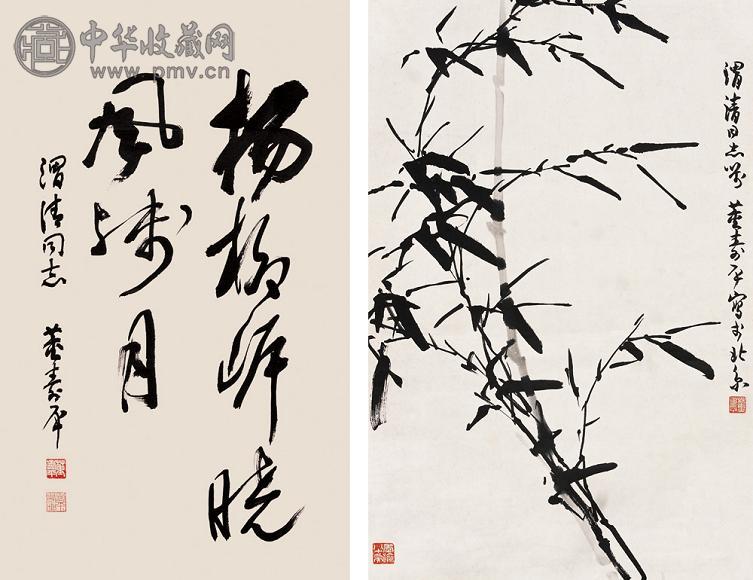 中华收藏网
www.pmv.cn
杨柳岸晓
风残月
渭清同志
董寿平
渭清同志嘱 董寿平写于北京